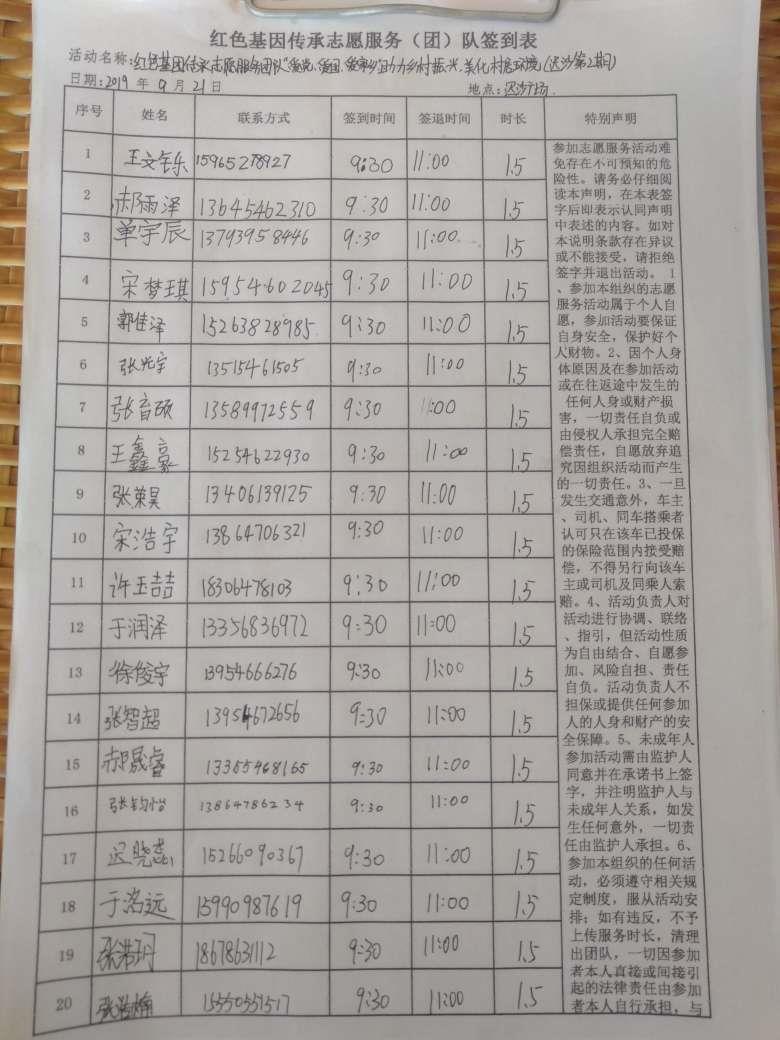 红色基因传承志愿服务（团）队签到表
活动名称：红色基因传承志愿服务团队"爱党、爱国、爱家乡"助力乡村振兴，美化村居环境（迟沙第2期）
日期：2019 年 9 月 21 日 地点：迟沙场
序号 姓名 联系方式 签到时间 签退时间 时长 特别声明
1 王文钰乐 15965278927 9:30 11:00 1.5
2 郝雨泽 13645462310 9:30 11:00 1.5
3 单宇辰 13793958446 9:30 11:00 1.5
4 宋梦琪 15954602045 9:30 11:00 1.5
5 郭佳泽 15263828985 9:30 11:00 1.5
6 张光宇 13515461505 9:30 11:00 1.5
7 张育硕 13589972559 9:30 11:00 1.5
8 王鑫豪 15254622930 9:30 11:00 1.5
9 张荣昊 13406139125 9:30 11:00 1.5
10 宋浩宇 13864706321 9:30 11:00 1.5
11 许玉喆 18306478103 9:30 11:00 1.5
12 于润泽 13356836972 9:30 11:00 1.5
13 徐俊宇 13954666276 9:30 11:00 1.5
14 张智超 13954672656 9:30 11:00 1.5
15 郝晟睿 13365468165 9:30 11:00 1.5
16 张钧怡 13864786234 9:30 11:00 1.5
17 迟晓蕊 15266090367 9:30 11:00 1.5
18 于洺远 15990987619 9:30 11:00 1.5
19 张浩玥 18678631112 9:30 11:00 1.5
20 张浩楠 15550551517 9:30 11:00 1.5
参加志愿服务活动难
免存在不可预知的危
险性。请务必仔细阅
读本声明，在本表签
字后即表示认同声明
中表述的内容。如对
本说明条款存在异议
或不能接受，请拒绝
签字并退出活动。 1
、参加本组织的志愿
服务活动属于个人自
愿，参加活动要保证
自身安全，保护好个
人财物。2、因个人身
体原因及在参加活动
或在往返途中发生的
任何人身或财产损
害，一切责任自负或
由侵权人承担完全赔
偿责任，自愿放弃追
究因组织活动而产生
的一切责任。3、一旦
发生交通意外，车主
、司机、同车搭乘者
认可只在该车已投保
的保险范围内接受赔
偿，不得另行向该车
主或司机及同乘人索
赔。4、活动负责人对
活动进行协调、联络
、指引，但活动性质
为自由结合、自愿参
加、风险自担、责任
自负。活动负责人不
担保或提供任何参加
人的人身和财产的安
全保障。5、未成年人
参加活动需由监护人
同意并在承诺书上签
字，并注明监护人与
未成年人关系，如发
生任何意外，一切责
任由监护人承担。6、
参加本组织的任何活
动，必须遵守相关规
定制度，服从活动安
排；如有违反，不予
上传服务时长，清理
出团队，一切因参加
者本人直接或间接引
起的法律责任由参加
者本人自行承担，与